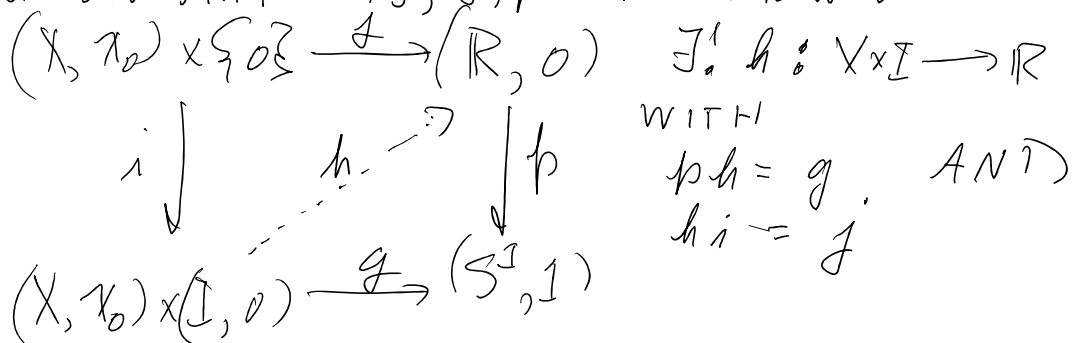 (X, x₀) × {0} f (ℝ, 0) ∃! h : X×I → ℝ
WITH
i h p ph = g AND
hi = f
(X, x₀) × (I, 0) g (S¹, 1)